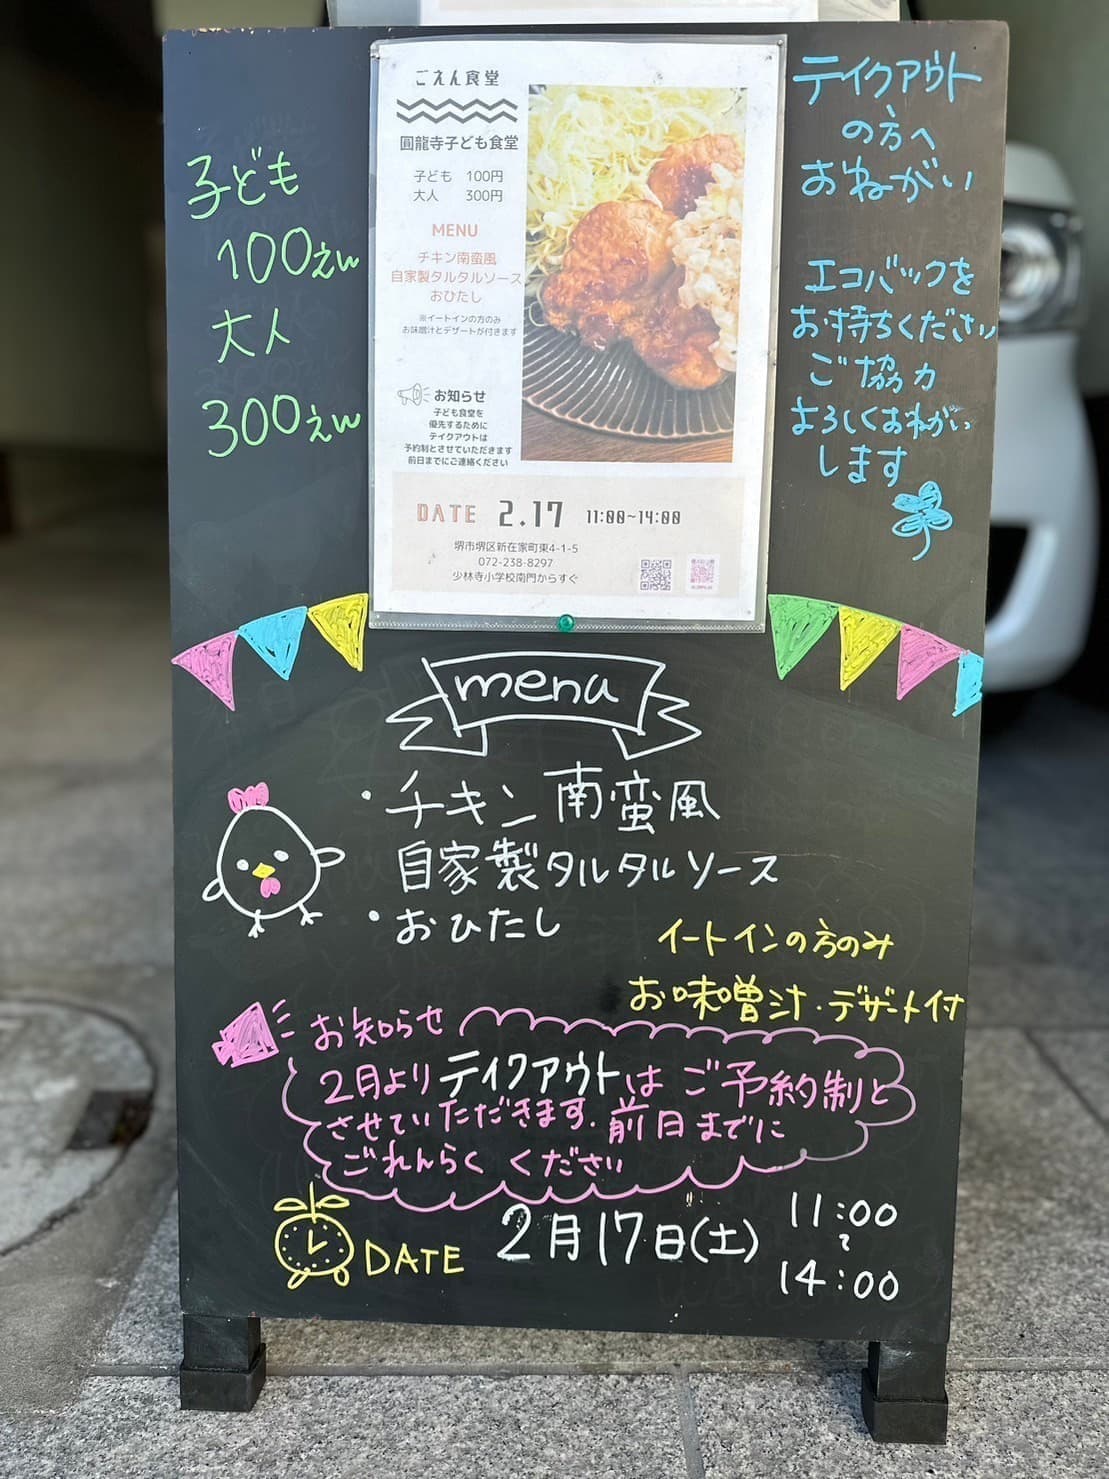 子ども
100えん
大人
300えん
ごえん食堂
圓龍寺子ども食堂
子ども 100円
大人 300円
MENU
チキン南蛮風
自家製タルタルソース
おひたし
※イートインの方のみ
お味噌汁とデザートが付きます
お知らせ
子ども食堂を
優先するために
テイクアウトは
予約制とさせていただきます
前日までにご連絡ください
DATE 2.17 11:00~14:00
堺市堺区新在家町東4-1-5
072-238-8297
少林寺小学校南門からすぐ
テイクアウト
の方へ
おねがい
エコバックを
お持ちください
ご協力
よろしくおねがい
します
menu
・チキン南蛮風
自家製タルタルソース
・おひたし
イートインの方のみ
お味噌汁・デザート付
お知らせ
2月よりテイクアウトはご予約制と
させていただきます.前日までに
ごれんらくください
DATE 2月17日(土) 11:00
～
14:00